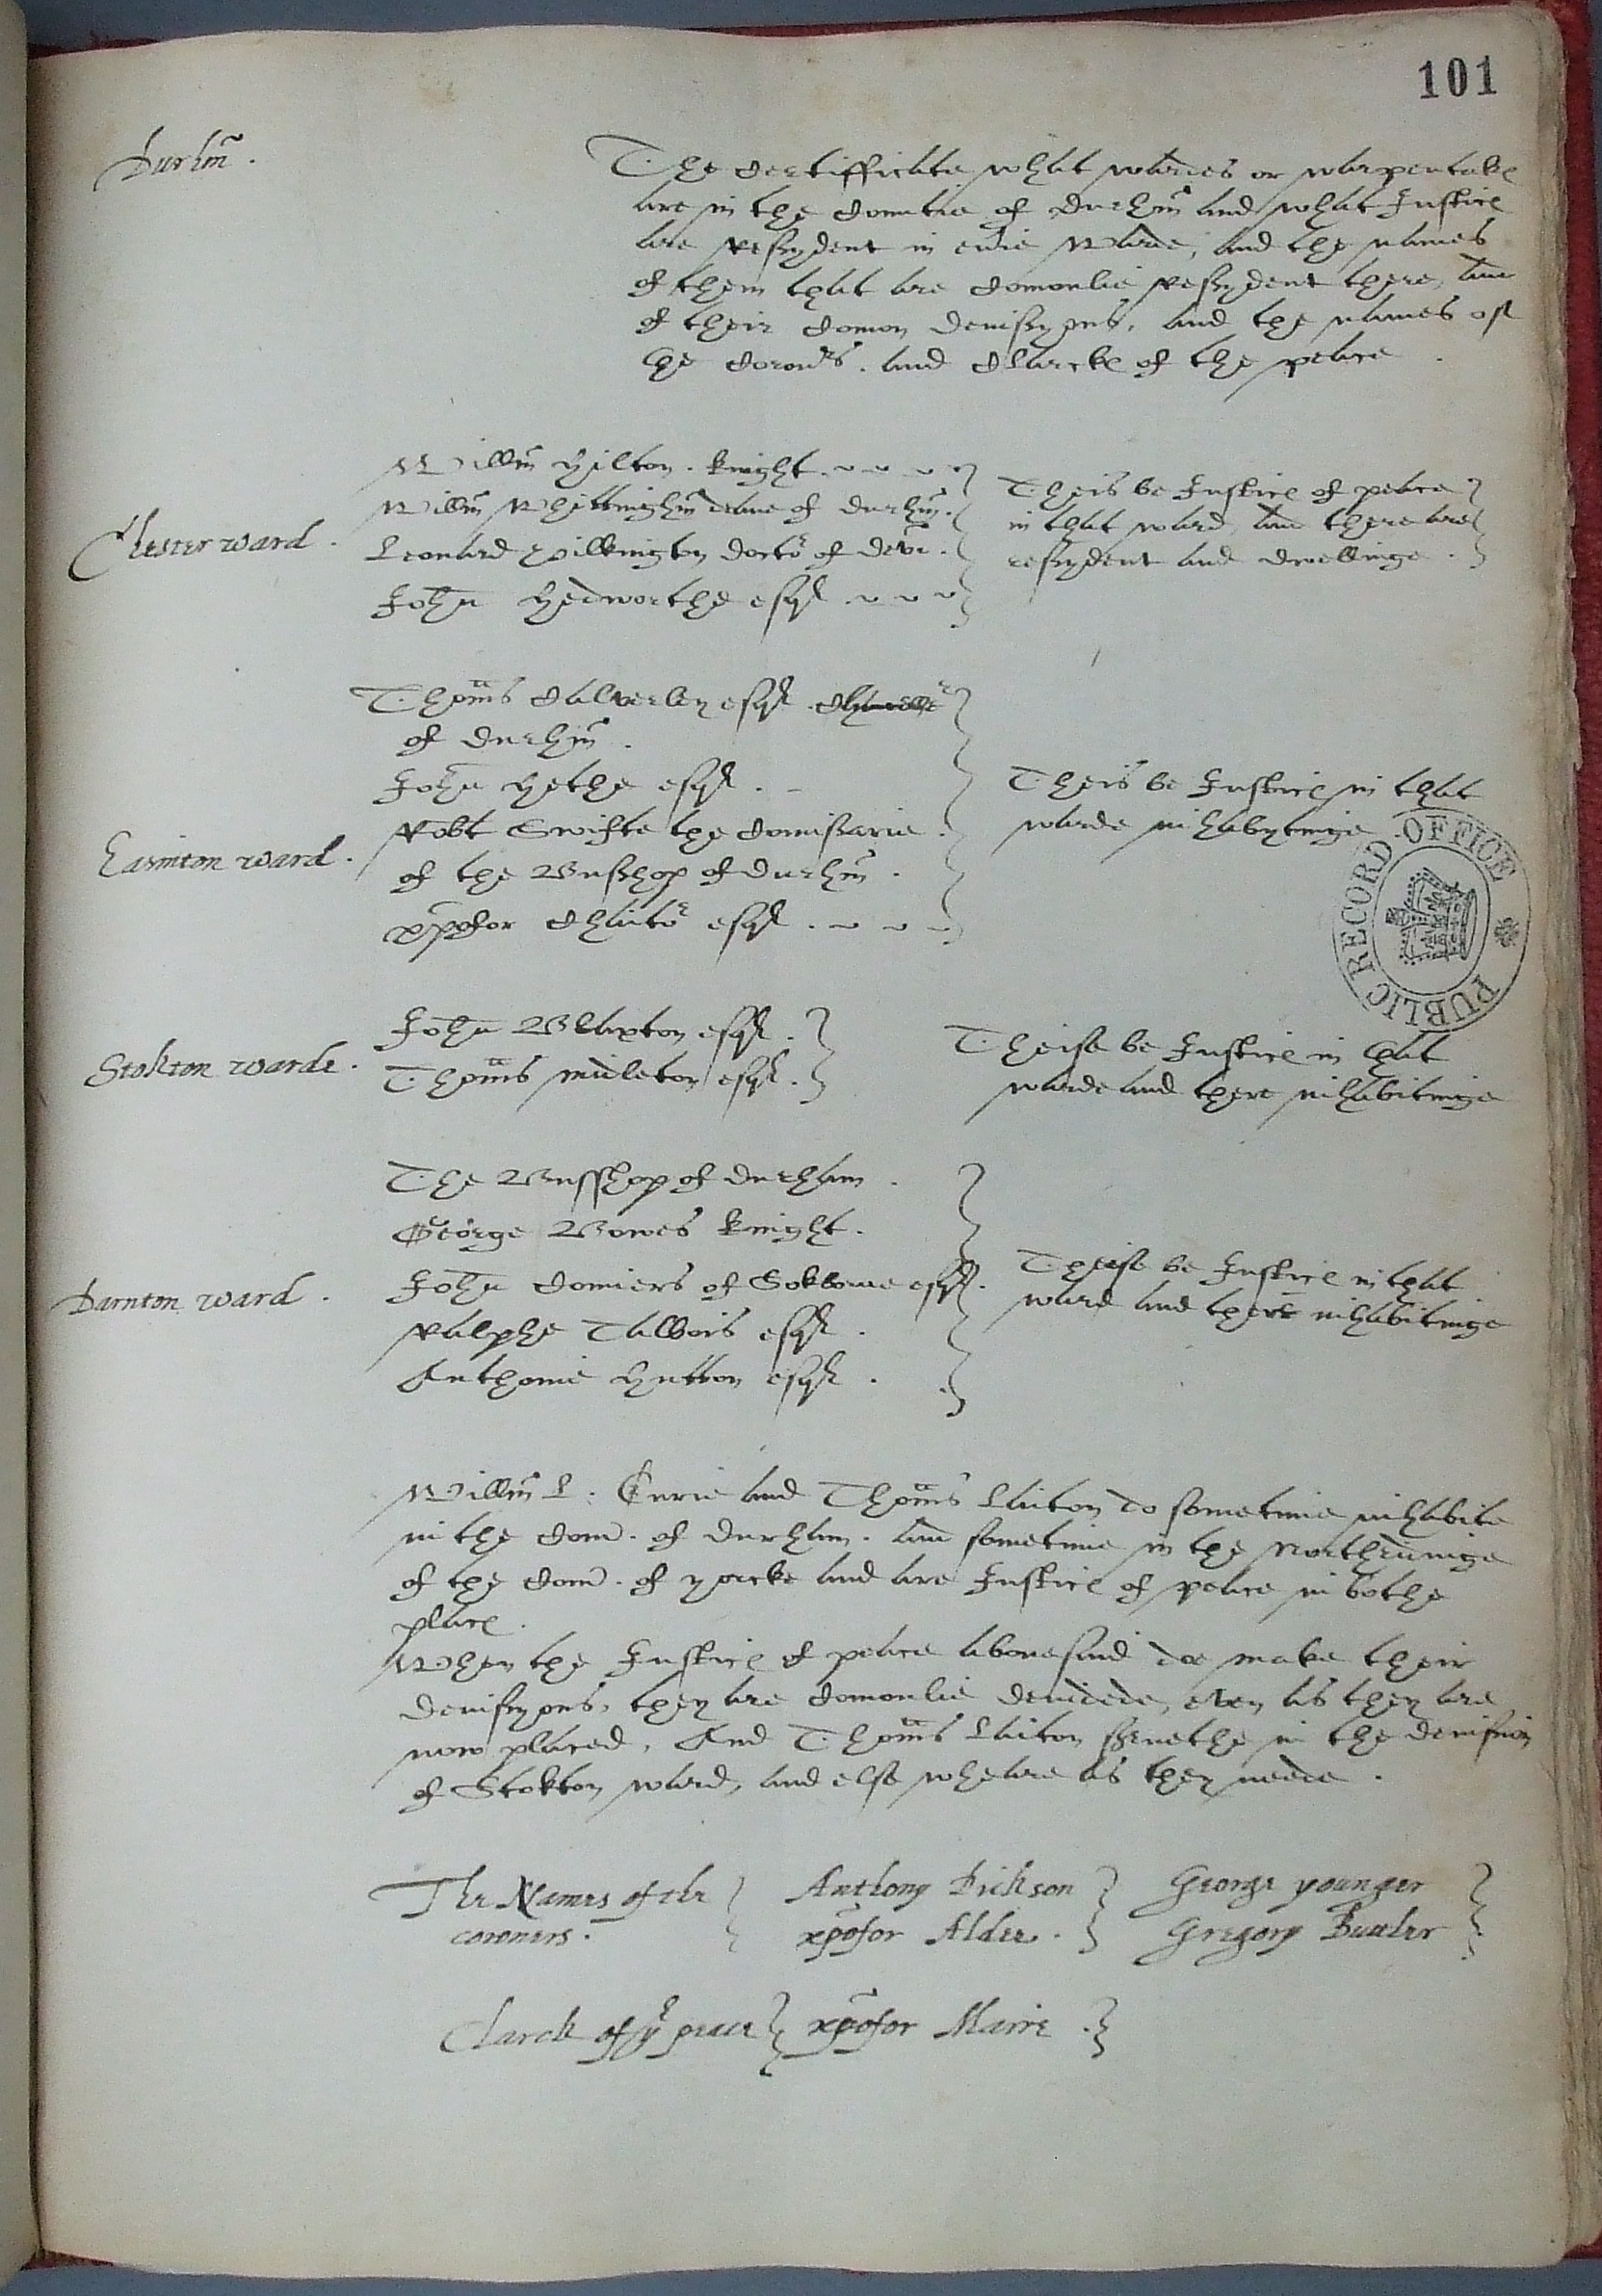 101
Durhm̃.
The Certifficate what wardes or wapentakes
are in the Countie of Durhm̃ and what Justices
are resydent in eũie Warde, and the names
of them that are Comonlie resydent there, and
of their Comon devissyons, and the names of
the Coroners. and Clarckes of the peace
Chester ward.
Willm̃ Hilton. knight.
Willm̃ Whittinghm̃ deane of Durhm̃.
Leonard Pilkington doctor of devi.
John Hedworthe esqr
Theis be Justices of peace
in that ward and there are
resydent and dwellinge.
Thom̃s Calverley esqr. Chauncellr
of Durhm̃.
John Hethe esqr.
Easinton ward.
Robt Swifte the Comissarie
of the Busshop of Durhm̃.
xp̃ofor Chaitor esqr.
Theis be Justices in that
warde inhabytinge
PUBLIC RECORD OFFICE
Stokton warde.
John Blaxton esqr.
Thom̃s midleton esqr.
Theise be Justices in that
warde and there inhabitinge
The Busshop of Durham.
George Bowes knight.
Darnton ward.
John Coniers of Sokborne esqr.
Ralphe Tallbois esqr.
Anthonie Hutton esqr.
Theise be Justices in that
ward and there inhabitinge
Willm̃ L: Eurie and Thom̃s Laiton do sometime inhabite
in the Coun. of Durham. and sometime in the Northridinge
of the Coun. of yorcke and are Justices of peace in bothe
places.
When the Justices of peace abouesaid doe make their
devissyons, they are Comonlie devidede, even as they are
now placed, And Thom̃s Laiton seruethe in the devision
of Stokton ward, and else wheare as they neede.
The Names of the
coroners.
Anthony Dickson
xp̃ofor Alder.
George younger
Gregory Butler
Clarck of ye peace xp̃ofor Maire.